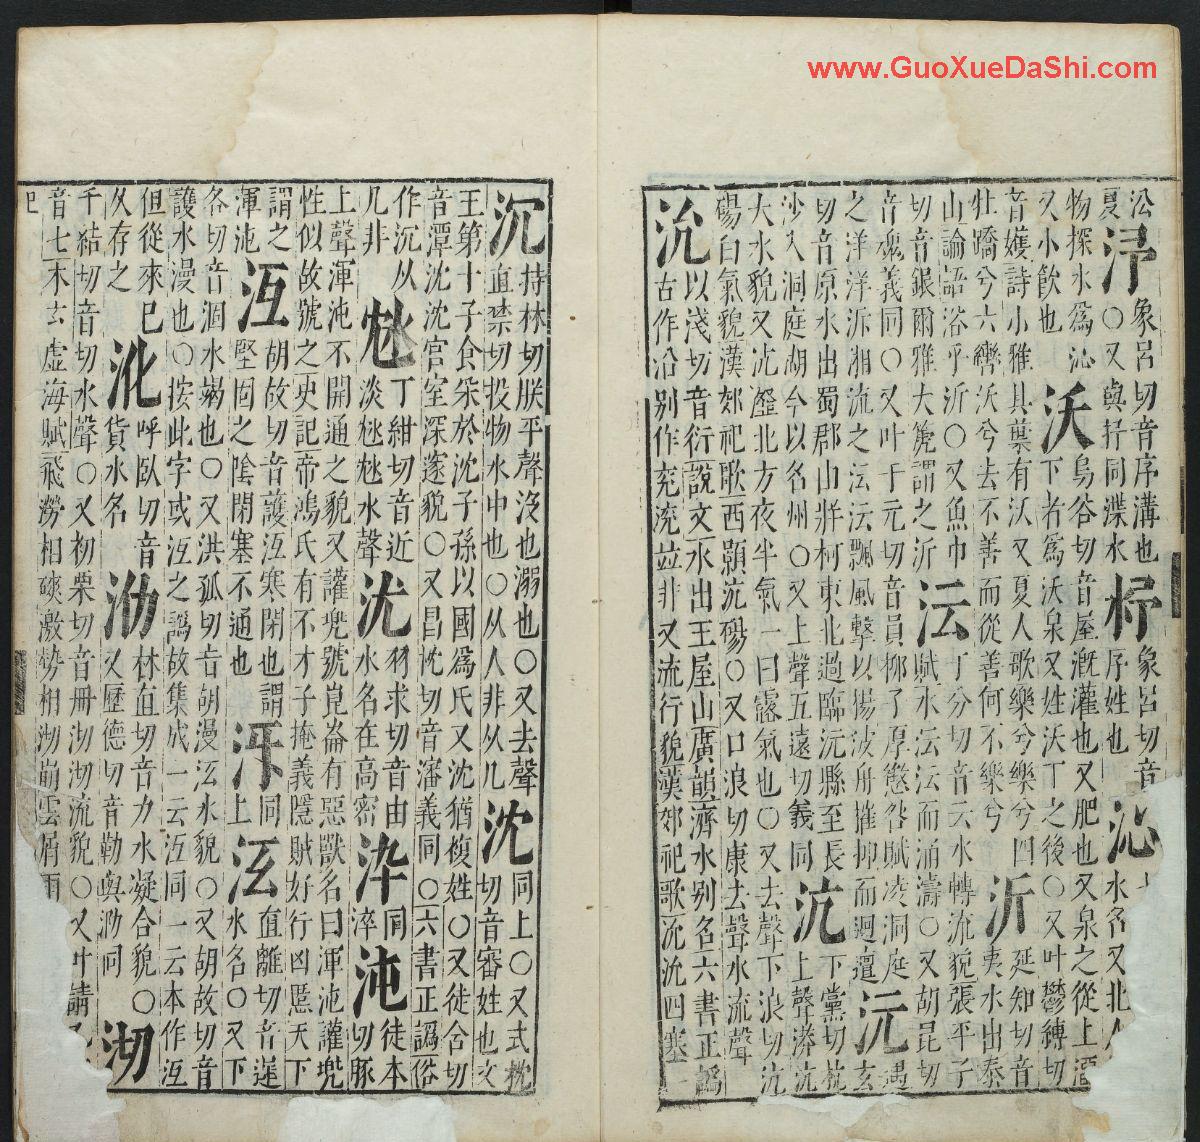 www.GuoXueDaShi.com
象呂切音序溝也
〇又與抒同渫水
象呂切音
序姓也
沁
水名又北人
物探水爲沁
又小飲也
沃
烏谷切音屋溉灌也又肥也又泉之從上溉
下者爲沃泉又姓沃丁之後〇又叶鬱縛切
音嬳詩小雅其葉有沃又夏人歌樂兮樂兮四
牡蹻兮六轡沃兮去不善而從善何不樂兮
沂
延知切音
夷水出泰
山論語浴乎沂〇又魚巾
切音銀爾雅大箎謂之沂
沄
于分切音云水轉流貌張平子
賦水沄沄而涌濤〇又胡昆切
音魂義同〇又叶于元切音員柳子厚懲咎賦凌洞庭
之洋洋泝湘流之沄沄飄風擊以揚波舟摧抑而迴邅
沅
遇
玄
切音原水出蜀郡山牂柯東北過臨沅縣至長
沙入洞庭湖今以名州〇又上聲五遠切義同
沆
下黨切杭
上聲漭沆
大水貌又沆瀣北方夜半氣一曰露氣也〇又去聲下浪切沆
碭白氣貌漢郊祀歌西顥沆碭〇又口浪切康去聲水流聲
沇
以淺切音衍說文水出王屋山廣韻濟水别名六書正譌
古作沿别作兖渷竝非又流行貌漢郊祀歌沇沇四塞
沉
持林切朕平聲没也溺也〇又去聲
直禁切投物水中也〇从人非从几
沈
同上〇又式枕
切音審姓也文
王第十子食采於沈子孫以國爲氏又沈猶複姓〇又徒含切
音潭沈沈宫室深邃貌〇又昌枕切音瀋義同〇六書正譌俗
作沉从
几非
丁紺切音近
水聲
沋
羽求切音由
水名在高密
同
淬
沌
徒本
切豚
上聲渾沌不開通之貌又讙兜號崑崙有惡獸名曰渾沌讙兜
性似故號之史記帝鴻氏有不才子掩義隱賊好行凶慝天下
謂之
渾沌
沍
胡故切音護沍寒閉也謂
堅固之陰閉塞不通也
同
上
泫
直離切音遲
水名〇又下
各切音涸水竭也〇又洪孤切音胡漫泫水貌〇又胡故切音
護水漫也〇按此字或沍之譌故集成一云沍同一云本作沍
但從來已
久存之
沎
呼臥切音
貨水名
泐
林直切音力水凝合貌〇
又歷德切音勒與泐同
沏
千結切音切水聲〇又初栗切音冊沏沏流貌〇又叶請
音七木玄虛海賦飛澇相磢激勢相沏崩雲屑雨